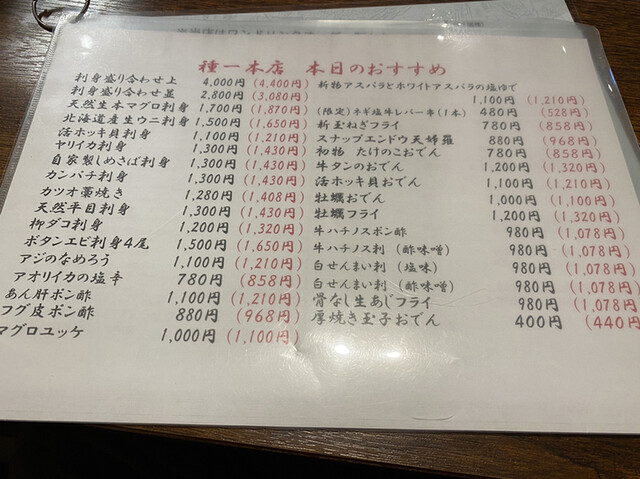 種一本店 本日のおすすめ
刺身盛り合わせ上 4,000円 (4,400円)
刺身盛り合わせ並 2,800円 (3,080円)
天然生本マグロ刺身 1,700円 (1,870円)
北海道産生ウニ刺身 1,500円 (1,650円)
活ホッキ貝刺身 1,100円 (1,210円)
ヤリイカ刺身 1,300円 (1,430円)
自家製しめさば刺身 1,300円 (1,430円)
カンパチ刺身 1,300円 (1,430円)
カツオ藁焼き 1,280円 (1,408円)
天然平目刺身 1,300円 (1,430円)
柳ダコ刺身 1,200円 (1,320円)
ボタンエビ刺身4尾 1,500円 (1,650円)
アジのなめろう 1,100円 (1,210円)
アオリイカの塩辛 780円 (858円)
あん肝ポン酢 1,100円 (1,210円)
フグ皮ポン酢 880円 (968円)
マグロユッケ 1,000円 (1,100円)
新物アスパラとホワイトアスパラの塩ゆで
1,100円 (1,210円)
(限定)ネギ塩牛レバー串(1本) 480円 (528円)
新玉ねぎフライ 780円 (858円)
スナップエンドウ天婦羅 880円 (968円)
初物 たけのこおでん 780円 (858円)
牛タンのおでん 1,200円 (1,320円)
活ホッキ貝おでん 1,100円 (1,210円)
牡蠣おでん 1,000円 (1,100円)
牡蠣フライ 1,200円 (1,320円)
牛ハチノスポン酢 980円 (1,078円)
牛ハチノス刺 (酢味噌) 980円 (1,078円)
白せんまい刺 (塩味) 980円 (1,078円)
白せんまい刺 (酢味噌) 980円 (1,078円)
骨なし生あじフライ 980円 (1,078円)
厚焼き玉子おでん 400円 (440円